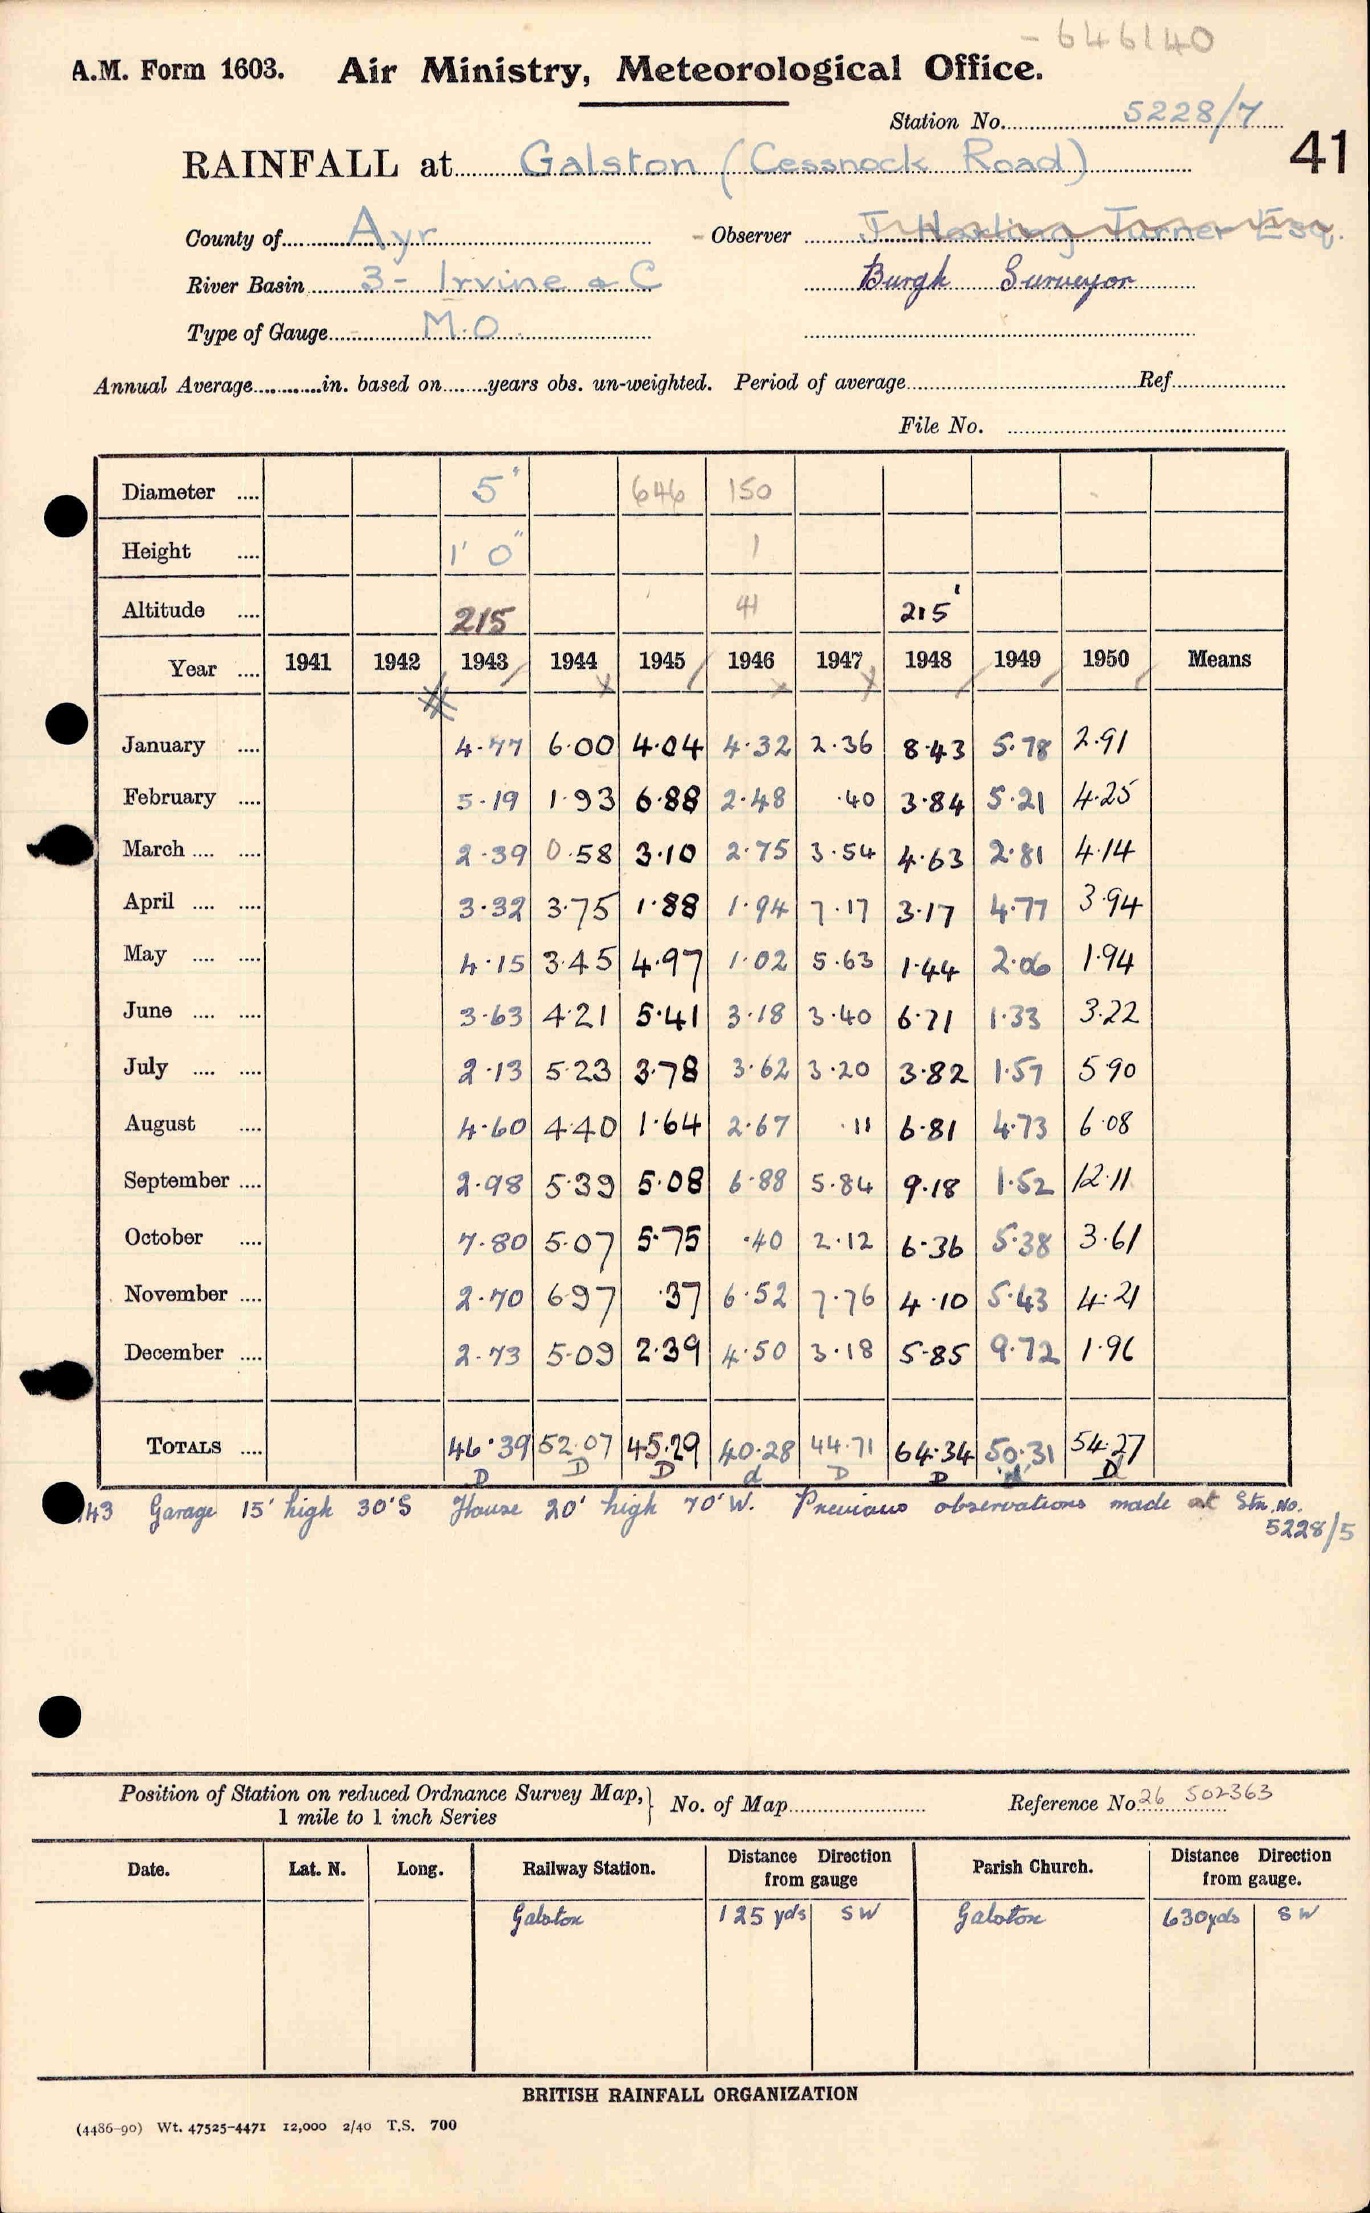 - 646140
A.M. Form 1603. Air Ministry, Meteorological Office.
Station No. 5228/7
41
RAINFALL at Galston (Cessnock Road)
County of Ayr - Observer J Harling Turner Esq.
River Basin 3 - Irvine & C Burgh Surveyor
Type of Gauge M.O.
Annual Average in. based on years obs. un-weighted. Period of average Ref
File No.
Diameter .... 5" 646 150
Height .... 1' 0" 1
Altitude .... 215 41 215'
Year .... 1941 1942 1943 1944 1945 1946 1947 1948 1949 1950 Means
January .... 4.77 6.00 4.04 4.32 2.36 8.43 5.78 2.91
February .... 5.19 1.93 6.88 2.48 .40 3.84 5.21 4.25
March .... .... 2.39 0.58 3.10 2.75 3.54 4.63 2.81 4.14
April .... .... 3.32 3.75 1.88 1.94 7.17 3.17 4.77 3.94
May .... .... 4.15 3.45 4.97 1.02 5.63 1.44 2.06 1.94
June .... .... 3.63 4.21 5.41 3.18 3.40 6.71 1.33 3.22
July .... .... 2.13 5.23 3.78 3.62 3.20 3.82 1.57 5.90
August .... 4.60 4.40 1.64 2.67 .11 6.81 4.73 6.08
September .... 2.98 5.39 5.08 6.88 5.84 9.18 1.52 12.11
October .... 7.80 5.07 5.75 .40 2.12 6.36 5.38 3.61
November .... 2.70 6.97 .37 6.52 7.76 4.10 5.43 4.21
December .... 2.73 5.09 2.39 4.50 3.18 5.85 9.72 1.96
TOTALS .... 46.39 52.07 45.29 40.28 44.71 64.34 50.31 54.27
D D D d D D d D
43 Garage 15' high 30'S House 20' high 70'W. Previous observations made at Stn. No.
5228/5
Position of Station on reduced Ordnance Survey Map, 1 mile to 1 inch Series } No. of Map Reference No. 26 502363
Date. Lat. N. Long. Railway Station. Distance Direction from gauge Parish Church. Distance Direction from gauge.
Galston 125 yds SW Galston 630 yds SW
BRITISH RAINFALL ORGANIZATION
(4486-90) Wt. 47525-4471 12,000 2/40 T.S. 700